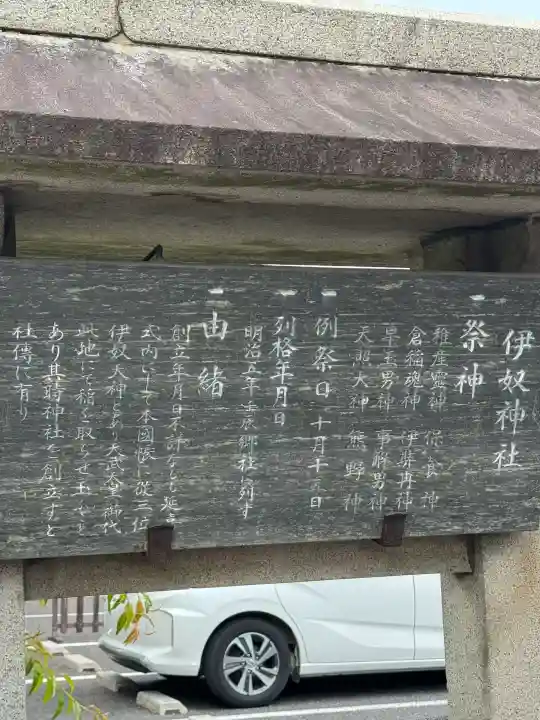 伊奴神社
一 祭神
稚産霊神 保食神
倉稲魂神 伊弉冉神
早玉男神 事解男神
天照大神 熊野神
一 例祭日 十月十
日
一 列格年月日
明治五年 郷社に列す
一 由緒
創立年月日不詳なるも延
式内にして本國帳に従三位
伊奴天神とあり天武天皇御代
此地にて稲を取らせ玉
あり其時神社を創立すと
社傳に有り